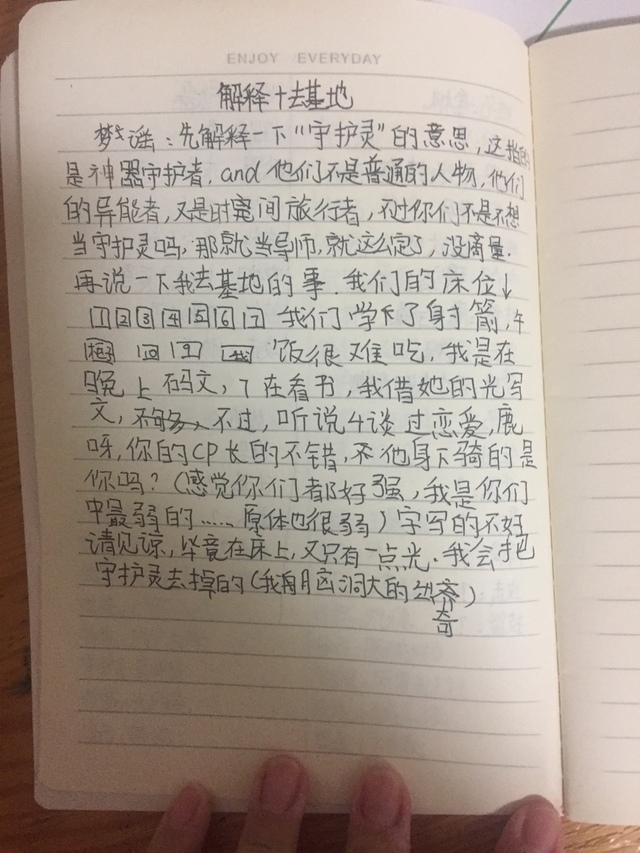 ENJOY EVERYDAY
解释+去基地
梦谣：先解释一下“守护灵”的意思，这指的
是神器守护者，and他们不是普通的人物，他们
的异能者，又是时空间旅行者，不过你们不是不想
当守护灵吗，那就当导师，就这么定了，没商量.
再说一下我去基地的事.我们的床位↓
1 2 3 4 5 6 7 我们学下了身寸箭，午
10 9 我 饭很难吃，我是在
晚上码文，7在看书，我借她的光写
文，不过，听说4谈过恋爱，鹿
呀，你的CP长的不错，他身下骑的是
你吗？（感觉你们都好强，我是你们
中最弱的……原体也很弱）字写的不好
请见谅，毕竟在床上，又只有一点光.我会把
守护灵去掉的（我用脑洞大的
奇